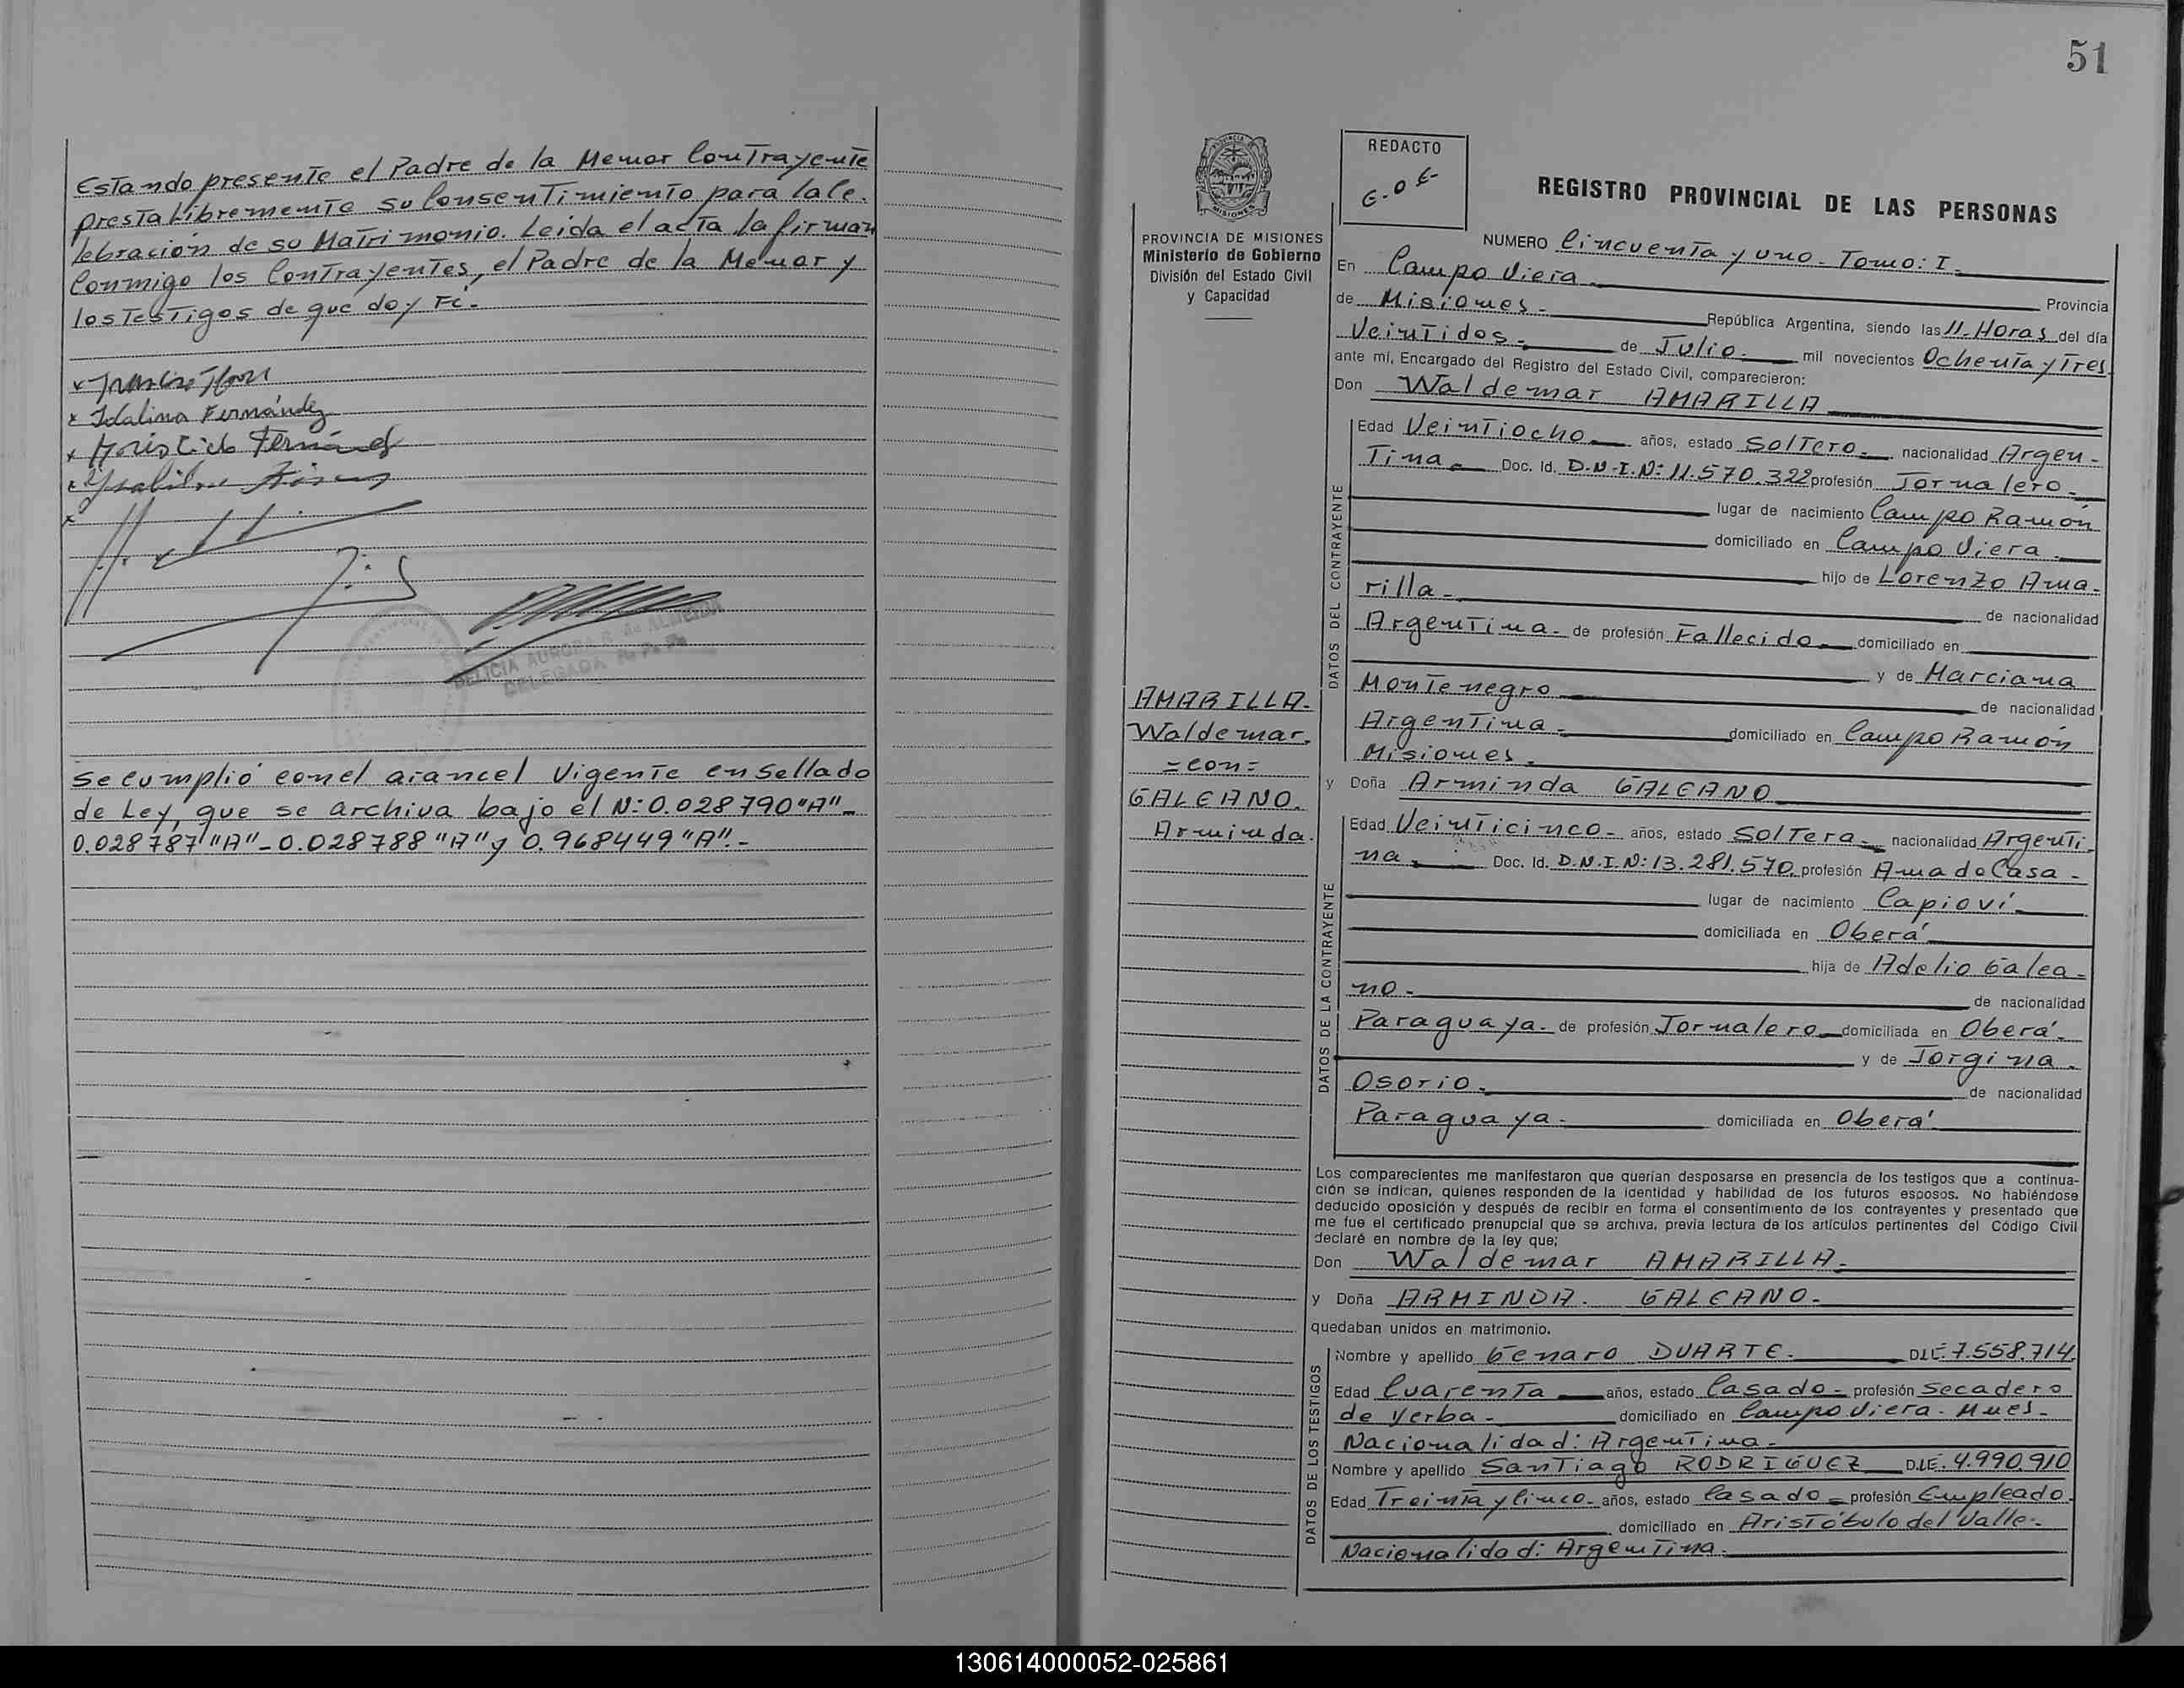 Estando presente el Padre de la Menor Contrayente
presta Libremente su Consentimiento para la Ce.
lebración de su Matrimonio. Leida el acta la firman
Conmigo los Contrayentes, el Padre de la Menor y
los Testigos de que doy Fé.-
x Idalina Fernández
DELICIA AURORA R de ALMEIDA
DELEGADA
Se cumplió con el arancel Vigente en Sellado
de Ley, que se archiva bajo el N: 0.028790 "A"-
0.028787 "A"- 0.028788 "A" y 0.968449 "A".-
51
PROVINCIA DE MISIONES
Ministerio de Gobierno
División del Estado Civil
y Capacidad
REDACTO
REGISTRO PROVINCIAL DE LAS PERSONAS
NUMERO Cincuenta y uno. Tomo: I.
En Campo Viera. Provincia
de Misiones. República Argentina, siendo las 11. Horas del día
Veintidos. de Julio. mil novecientos Ochenta y Tres
ante mí, Encargado del Registro del Estado Civil, comparecieron:
Don Waldemar AMARILLA
DATOS DEL CONTRAYENTE
Edad Veintiocho años, estado Soltero. nacionalidad Argen-
Tina Doc. Id. D.N.I.N: 11.570.322 profesión Jornalero.
lugar de nacimiento Campo Ramón
domiciliado en Campo Viera.
hijo de Lorenzo Ama-
rilla. de nacionalidad
Argentina. de profesión Fallecido domiciliado en
y de Marciana
Montenegro de nacionalidad
Argentina. domiciliado en Campo Ramón
Misiones.
AMARILLA.
Waldemar.
=con=
GALEANO.
Arminda.
y Doña Arminda GALEANO
DATOS DE LA CONTRAYENTE
Edad Veinticinco- años, estado Soltera. nacionalidad Argenti-
na. Doc. Id. D.N.I.N: 13.281.570. profesión Ama de Casa -
lugar de nacimiento Capioví
domiciliada en Oberá
hija de Adelio Galea-
no. de nacionalidad
Paraguaya. de profesión Jornalero domiciliada en Oberá.
y de Jorgina.
Osorio. de nacionalidad
Paraguaya. domiciliada en Oberá.
Los comparecientes me manifestaron que querían desposarse en presencia de los testigos que a continua-
ción se indican, quienes responden de la identidad y habilidad de los futuros esposos. No habiéndose
deducido oposición y después de recibir en forma el consentimiento de los contrayentes y presentado que
me fue el certificado prenupcial que se archiva, previa lectura de los artículos pertinentes del Código Civil
declaré en nombre de la ley que;
Don Waldemar AMARILLA.
y Doña ARMINDA. GALEANO.
quedaban unidos en matrimonio.
DATOS DE LOS TESTIGOS
Nombre y apellido Genaro DUARTE. 7.558.714
Edad Cuarenta años, estado Casado. profesión Secadero
de Yerba. domiciliado en Campo Viera. Mnes.
Nacionalidad: Argentina.
Nombre y apellido Santiago RODRIGUEZ 4.990.910
Edad Treinta y Cinco. años, estado Casado profesión Empleado
domiciliado en Aristóbulo del Valle.
Nacionalidad: Argentina.
130614000052-025861